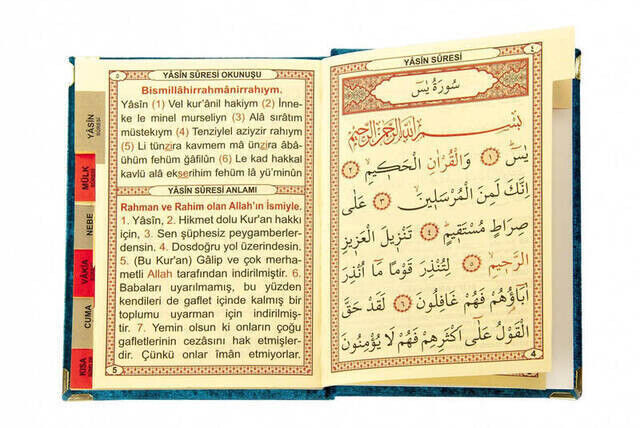 ٥
YÂSİN SÛRESİ OKUNUŞU
Bismillâhirrahmânirrahıym.
Yâsîn (1) Vel kur'ânil hakiym (2) İnne-
ke le minel murseliyn (3) Alâ sırâtım
müstekıym (4) Tenziylel aziyzir rahıym
(5) Li tünzira kavmem mâ ünzira âbâ-
ühüm fehüm ğâfilûn (6) Le kad hakkal
kavlü alâ ekserihim fehüm lâ yü'minûn
YÂSİN SÛRESİ ANLAMI
Rahman ve Rahim olan Allah'ın İsmiyle.
1. Yâsîn, 2. Hikmet dolu Kur'an hakkı
için, 3. Sen şüphesiz peygamberler-
densin. 4. Dosdoğru yol üzerindesin.
5. (Bu Kur'an) Gâlip ve çok merha-
metli Allah tarafından indirilmiştir. 6.
Babaları uyarılmamış, bu yüzden
kendileri de gaflet içinde kalmış bir
toplumu uyarman için indirilmiş-
tir. 7. Yemin olsun ki onların çoğu
gafletlerinin cezasını hak etmişler-
dir. Çünkü onlar îmân etmiyorlar.
5
YÂSİN
SÛRESİ
MÜLK
SÛRESİ
NEBE
VÂKIA
CUMA
KISA
YÂSİN SÛRESİ
٤
سُورَةُ يٰسٓ
بِسْــــمِ اللّٰهِ الرَّحْمٰنِ الرَّحِيمِ
يٰسٓ ﴿١﴾ وَالْقُرْاٰنِ الْحَكِيمِ ﴿٢﴾
اِنَّكَ لَمِنَ الْمُرْسَلِينَ ﴿٣﴾ عَلٰى
صِرَاطٍ مُسْتَقِيمٍ ﴿٤﴾ تَنْزِيلَ الْعَزِيزِ
الرَّحِيمِ ﴿٥﴾ لِتُنْذِرَ قَوْمًا مَٓا اُنْذِرَ
اٰبَٓاؤُ۬هُمْ فَهُمْ غَافِلُونَ ﴿٦﴾ لَقَدْ حَقَّ
الْقَوْلُ عَلٰٓى اَكْثَرِهِمْ فَهُمْ لَا يُؤْمِنُونَ
4